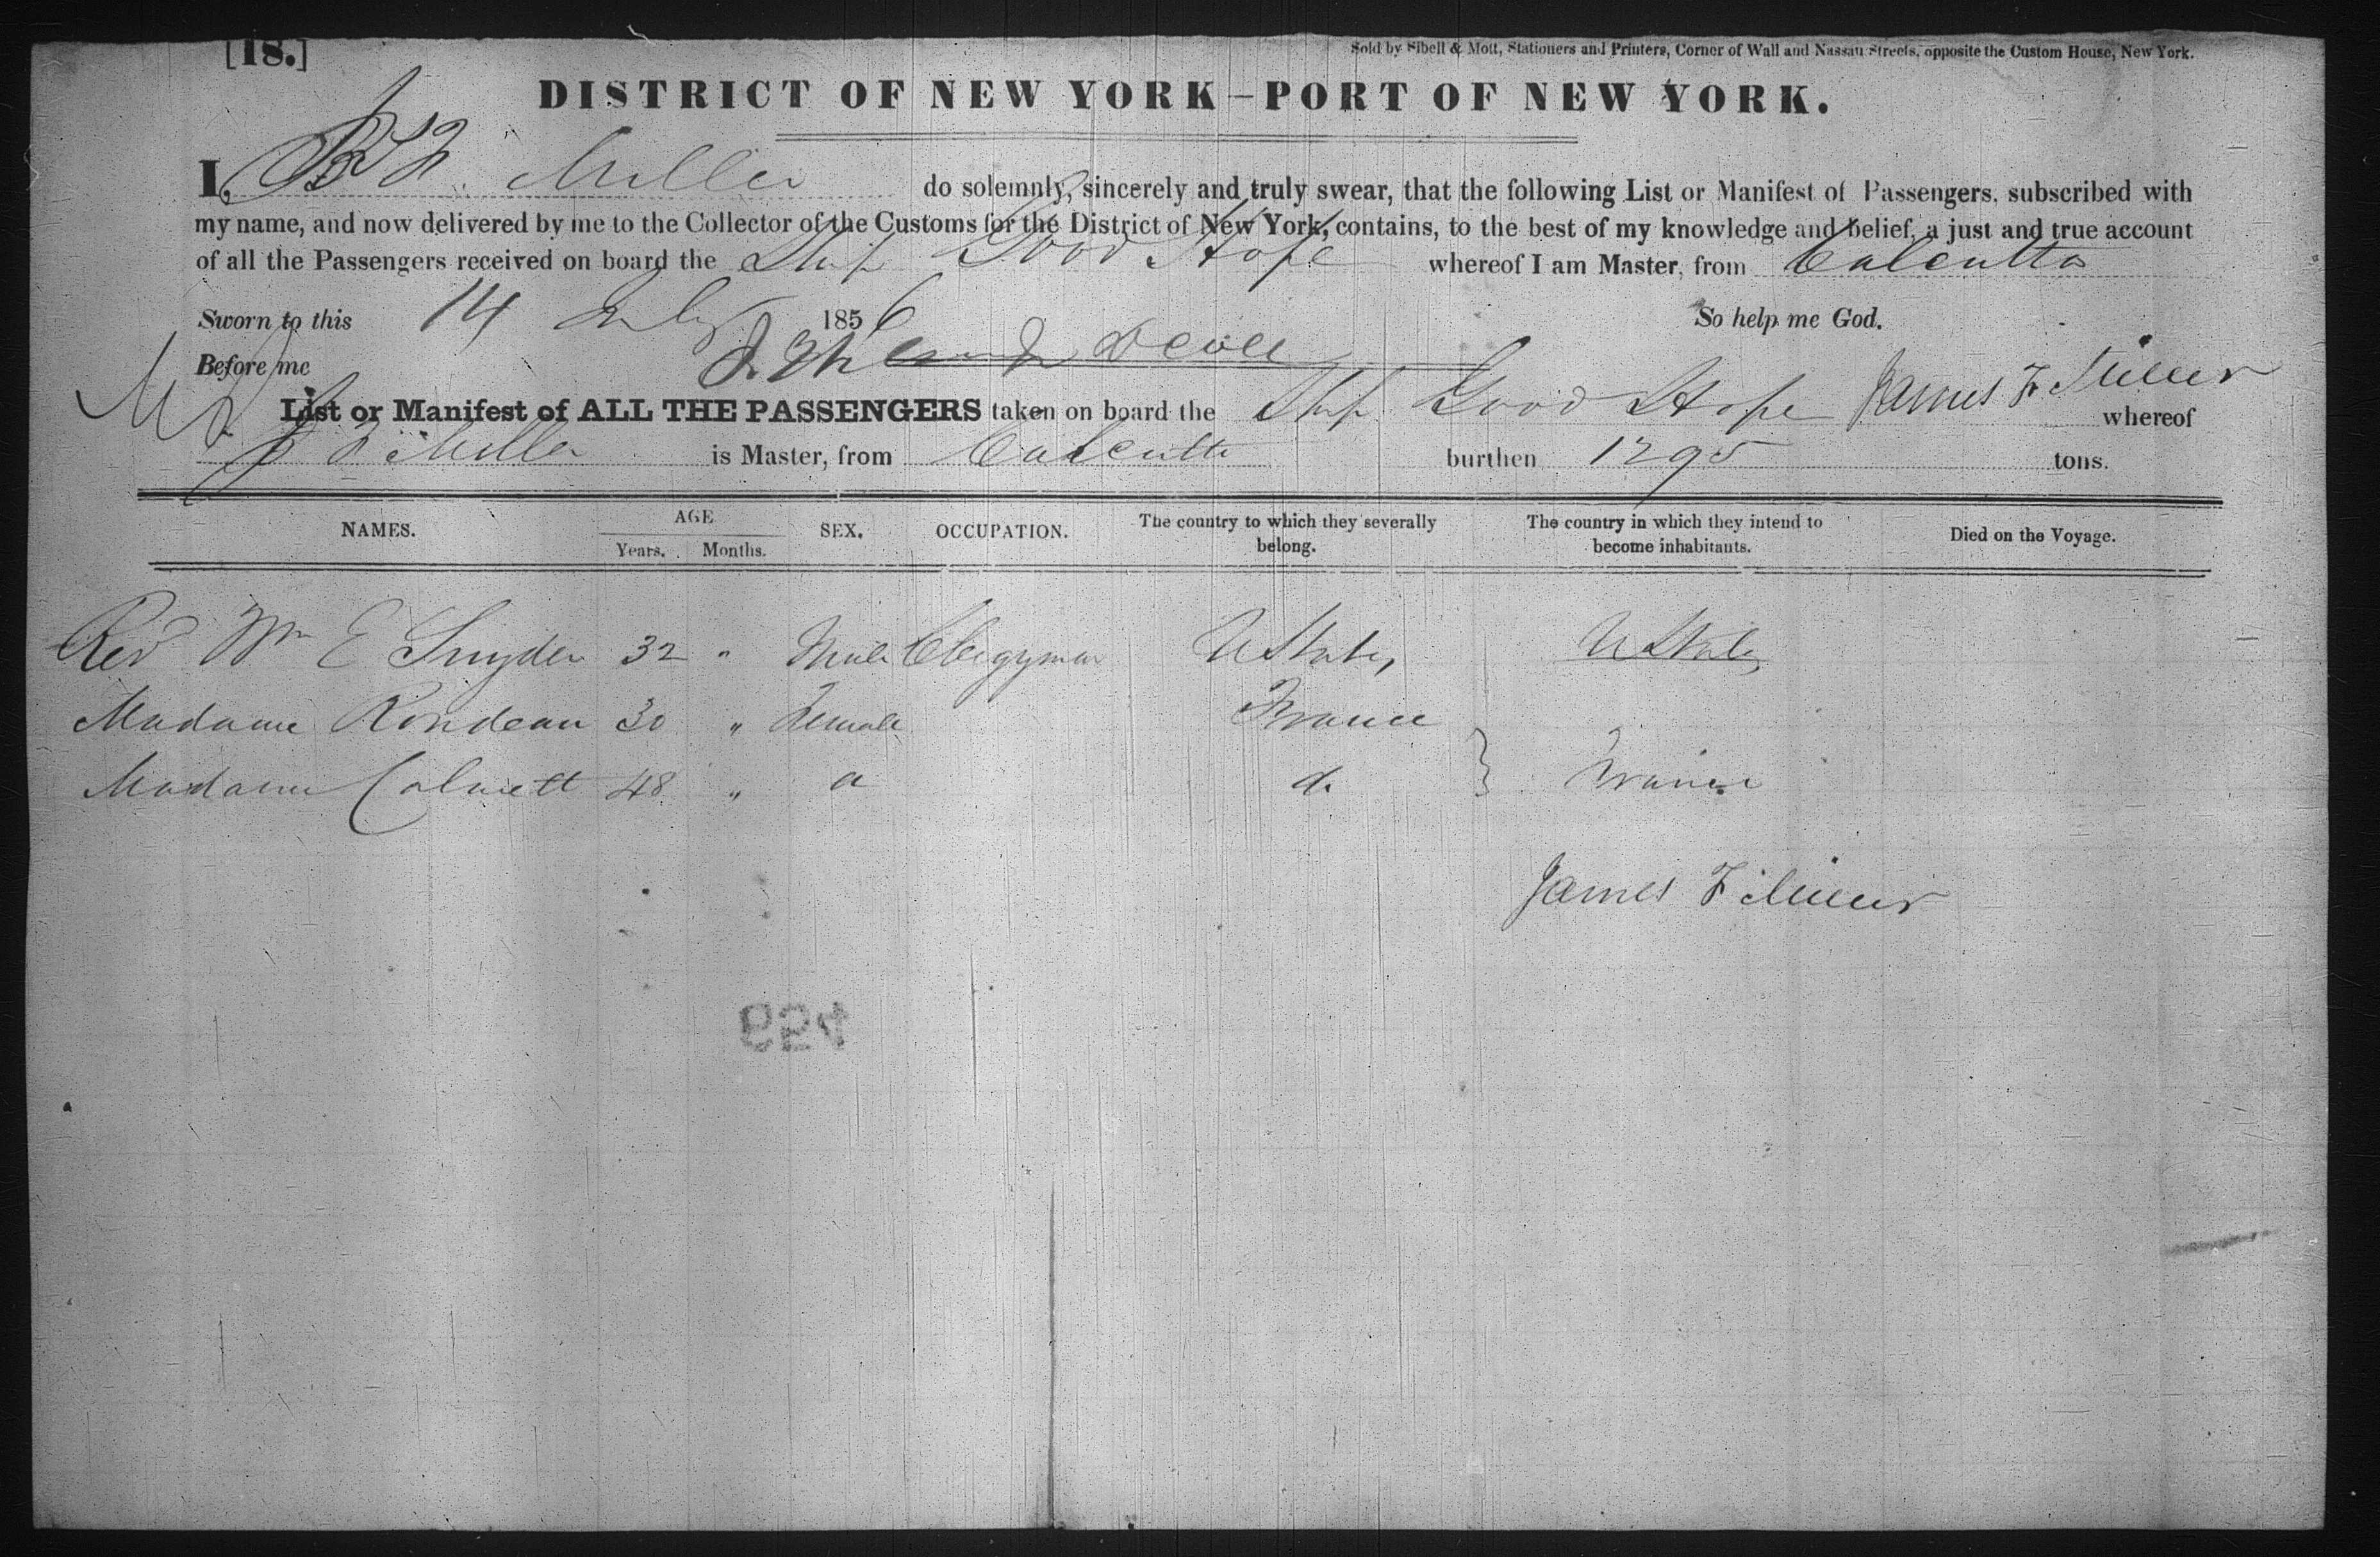 [18.]
Sold by Sibell & Mott, Stationers and Printers, Corner of Wall and Nassau Streets, opposite the Custom House, New York.
DISTRICT OF NEW YORK—PORT OF NEW YORK.
I, J F. Miller do solemnly, sincerely and truly swear, that the following List or Manifest of Passengers, subscribed with
my name, and now delivered by me to the Collector of the Customs for the District of New York, contains, to the best of my knowledge and belief, a just and true account
of all the Passengers received on board the Ship Good Hope whereof I am Master, from Calcutta
Sworn to this 14 July 1856 So help me God.
Before me James F Miller
List or Manifest of ALL THE PASSENGERS taken on board the Ship Good Hope whereof
J F Miller is Master, from Calcutta burthen 1295 tons.
NAMES. AGE SEX. OCCUPATION. The country to which they severally belong. The country in which they intend to become inhabitants. Died on the Voyage.
Years. Months.
Rev Wm E Snyder 32 " Male Clergyman U States U States
Madame Rondeau 30 " Female France
Madame 48 " d. } France
James F Miller